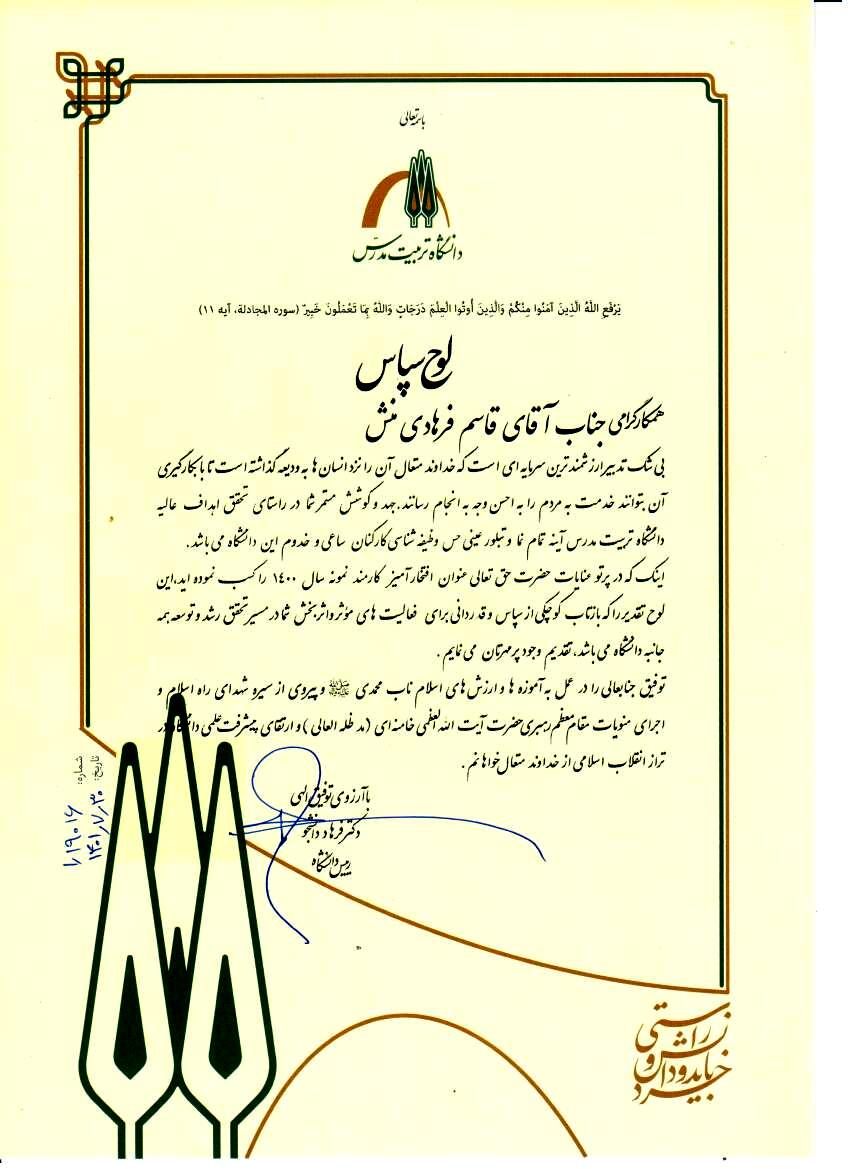 باسمه تعالی
دانشگاه تربیت مدرس
یَرْفَعِ اللهُ الَّذِینَ آمَنُوا مِنْکُمْ وَالَّذِینَ أُوتُوا الْعِلْمَ دَرَجَاتٍ وَاللهُ بِمَا تَعْمَلُونَ خَبِیرٌ (سوره المجادلة، آیه ۱۱)
لوح سپاس
همکار گرامی جناب آقای قاسم فرهادی منش
بی شک تدبیر ارزشمندترین سرمایه ای است که خداوند متعال آن را نزد انسان ها به ودیعه گذاشته است تا با بکارگیری
آن بتوانند خدمت به مردم را به احسن وجه به انجام رسانند. جهد و کوشش مستمر شما در راستای تحقق اهداف عالیه
دانشگاه تربیت مدرس آینه تمام نما و تبلور عینی حس وظیفه شناسی کارکنان ساعی و خدوم این دانشگاه می باشد.
اینک که در پرتو عنایات حضرت حق تعالی عنوان افتخارآمیز کارمند نمونه سال ۱۴۰۰ را کسب نموده اید، این
لوح تقدیر را که بازتاب کوچکی از سپاس و قدردانی برای فعالیت های مؤثر و اثربخش شما در مسیر تحقق رشد و توسعه همه
جانبه دانشگاه می باشد، تقدیم وجود پرمهرتان می نمایم.
توفیق جنابعالی را در عمل به آموزه ها و ارزش های اسلام ناب محمدی ﷺ و پیروی از سیره شهدای راه اسلام و
اجرای منویات مقام معظم رهبری حضرت آیت الله العظمی خامنه ای (مد ظله العالی) و ارتقای پیشرفت علمی دانشگاه در
تراز انقلاب اسلامی از خداوند متعال خواهانم.
با آرزوی توفیق الهی
دکتر فرهاد دانشجو
رییس دانشگاه
شماره: ۱۹۰۱۶/
تاریخ: ۱۴۰۱/۷/۳۰
ز راستی
خرد باید و دانش و